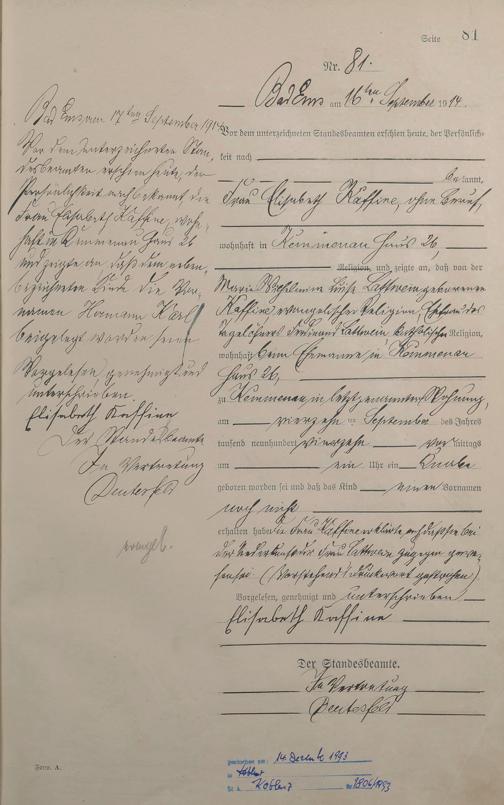 Seite 81
Nr. 81.
Bad Ems am 16ten September 1914.
Vor dem unterzeichneten Standesbeamten erschien heute, der Persönlich-
keit nach
be kannt,
die Frau Elisabeth Kaffine, ohne Beruf,
wohnhaft in Kemmenau Haus 26,
Religion, und zeigte an, daß von der
Marie Wilhelmine Luise geborenen
Kaffine evangelischer Religion, Ehefrau des
Tagelöhners katholischer Religion,
wohnhaft beim Ehemanne in Kemmenau
Haus 26,
zu Kemmenau in letztgenannter Wohnung,
am vierzehn ten September des Jahres
tausend neunhundert vierzehn vor mittags
um ein Uhr ein Knabe
geboren worden sei und daß das Kind einen Vornamen
noch nicht
erhalten habe. Die Frau Kaffine erklärte, daß sie bei
der Niederkunft der Frau zugegen gewe-
sen sei. (Vorstehend Druckwort gestrichen).
Vorgelesen, genehmigt und unterschrieben
Elisabeth Kaffine
Der Standesbeamte.
In Vertretung
Bad Ems, am 17ten September 1914
Vor dem unterzeichneten Stan-
desbeamten erschien heute, der
Persönlichkeit nach bekannt die
Frau Elisabeth Kaffine, wohn-
haft in Kemmenau Haus 26
und zeigte an, daß dem neben-
bezeichneten Kinde die Vor-
namen Hermann Karl
beigelegt worden seien
Vorgelesen, genehmigt und
unterschrieben.
Elisabeth Kaffine
Der Standesbeamte
In Vertretung
evangel.
Form. A.
gestorben am: 14. Dezember 1993
in Koblenz
St. A. Koblenz Nr.